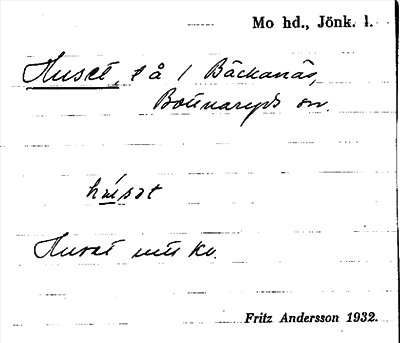 Mo hd., Jönk. l.
Huset, t å 1 Bäckanäs,
Bottnaryds sn.
hùsət
Huset mitt Ko.
Fritz Andersson 1932.